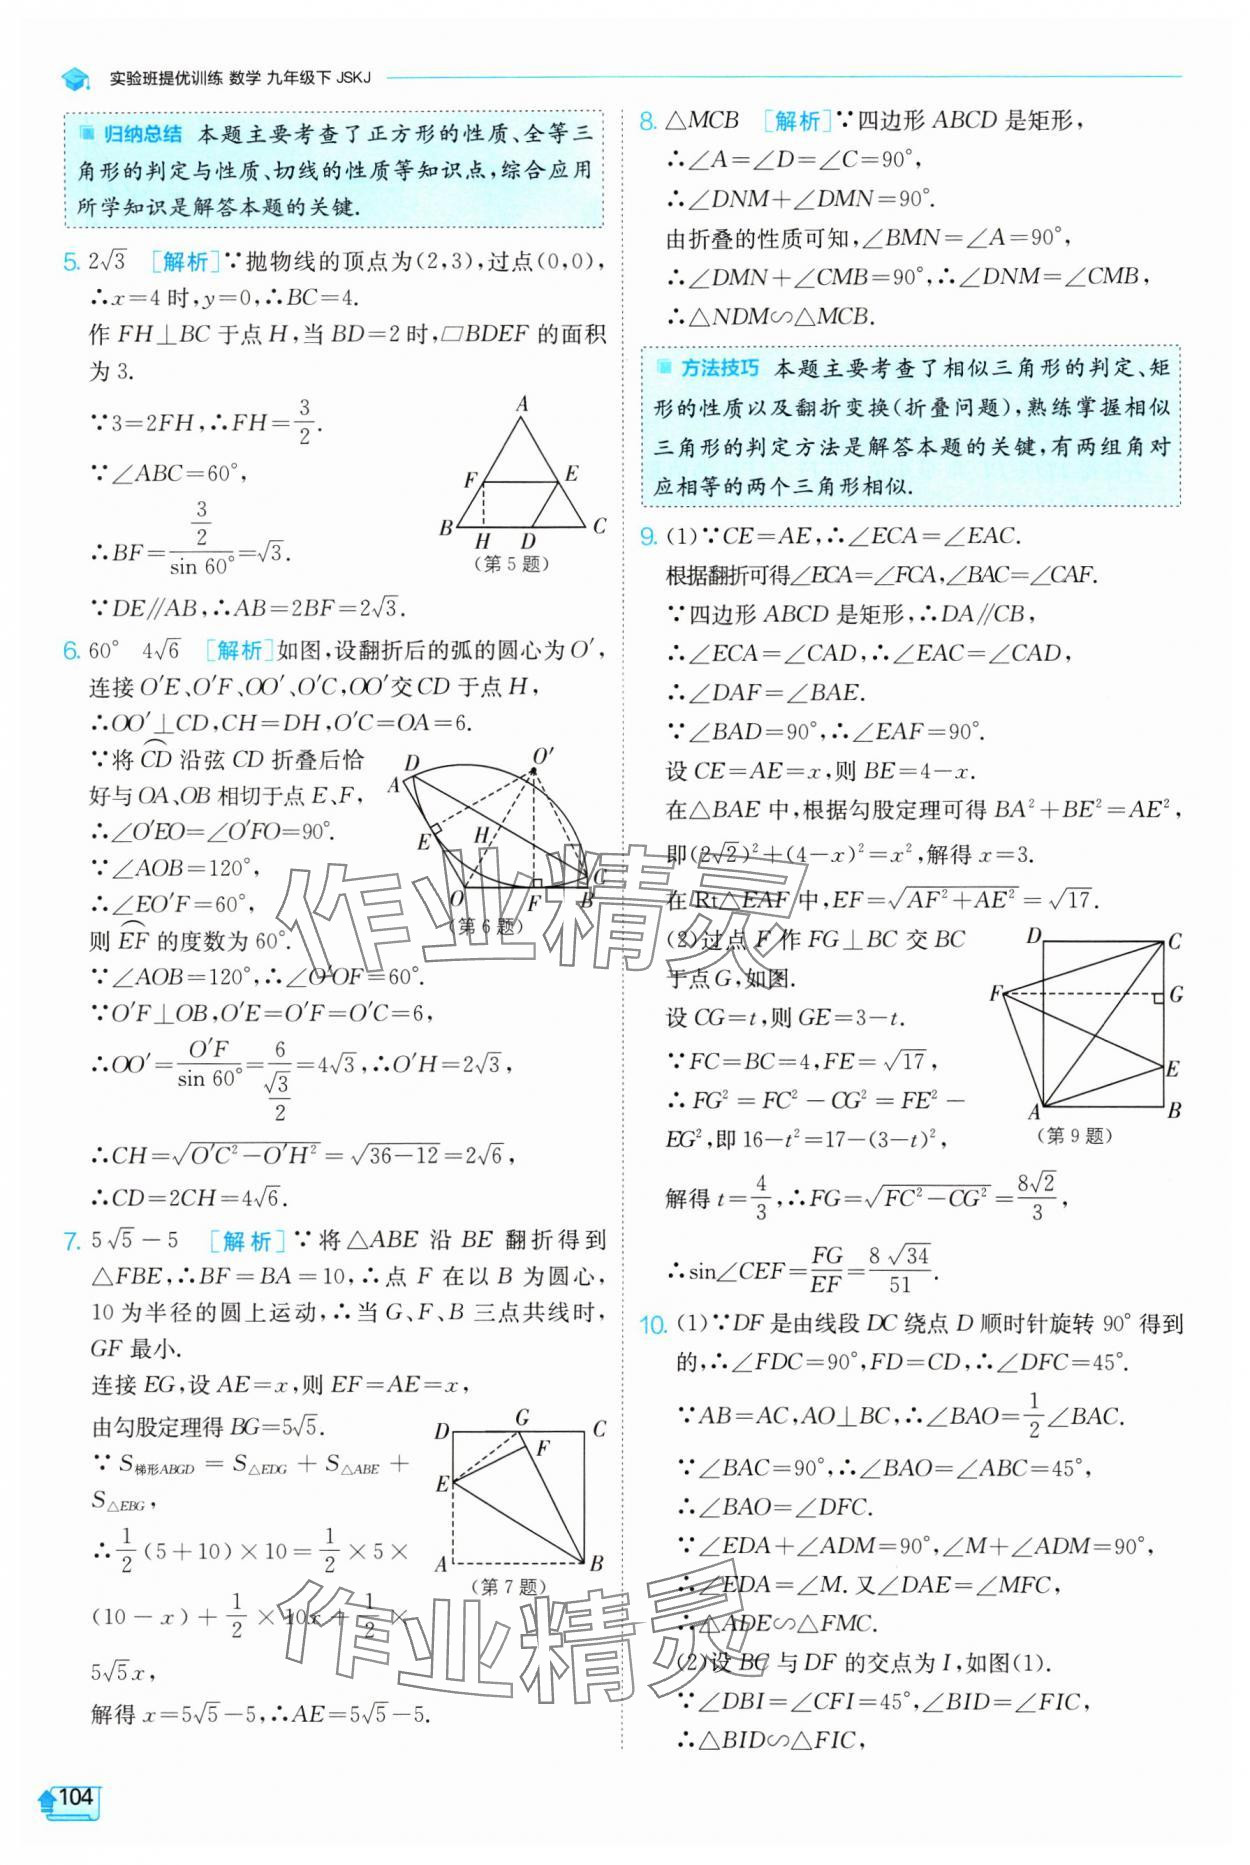 实验班提优训练 数学 九年级下 JSKJ
归纳总结 本题主要考查了正方形的性质、全等三
角形的判定与性质、切线的性质等知识点,综合应用
所学知识是解答本题的关键.
5. 2√3 [解析]∵抛物线的顶点为(2,3),过点(0,0),
∴x=4时,y=0,∴BC=4.
作FH⊥BC于点H,当BD=2时,▱BDEF的面积
为3.
∵3=2FH,∴FH=3/2.
∵∠ABC=60°,
∴BF=(3/2)/sin 60°=√3.
A
F
E
B
H
D
C
(第5题)
∵DE∥AB,∴AB=2BF=2√3.
6. 60° 4√6 [解析]如图,设翻折后的弧的圆心为O′,
连接O′E、O′F、OO′、O′C,OO′交CD于点H,
∴OO′⊥CD,CH=DH,O′C=OA=6.
∵将⌒CD沿弦CD折叠后恰
好与OA、OB相切于点E、F,
∴∠O′EO=∠O′FO=90°.
∵∠AOB=120°,
∴∠EO′F=60°,
则⌒EF的度数为60°.
D
O′
A
E
H
C
O
F
B
(第6题)
∵∠AOB=120°,∴∠O′OF=60°.
∵O′F⊥OB,O′E=O′F=O′C=6,
∴OO′=O′F/sin 60°=6/(√3/2)=4√3,∴O′H=2√3,
∴CH=√(O′C²-O′H²)=√(36-12)=2√6,
∴CD=2CH=4√6.
7. 5√5-5 [解析]∵将△ABE沿BE翻折得到
△FBE,∴BF=BA=10,∴点F在以B为圆心,
10为半径的圆上运动,∴当G、F、B三点共线时,
GF最小.
连接EG,设AE=x,则EF=AE=x,
由勾股定理得BG=5√5.
∵S梯形ABGD=S△EDG+S△ABE+
S△EBG,
∴1/2(5+10)×10=1/2×5×
(10-x)+1/2×10x+1/2×
5√5x,
D
G
C
F
E
A
B
(第7题)
解得x=5√5-5,∴AE=5√5-5.
8. △MCB [解析]∵四边形ABCD是矩形,
∴∠A=∠D=∠C=90°,
∴∠DNM+∠DMN=90°.
由折叠的性质可知,∠BMN=∠A=90°,
∴∠DMN+∠CMB=90°,∴∠DNM=∠CMB,
∴△NDM∽△MCB.
方法技巧 本题主要考查了相似三角形的判定、矩
形的性质以及翻折变换(折叠问题),熟练掌握相似
三角形的判定方法是解答本题的关键,有两组角对
应相等的两个三角形相似.
9. (1)∵CE=AE,∴∠ECA=∠EAC.
根据翻折可得∠ECA=∠FCA,∠BAC=∠CAF.
∵四边形ABCD是矩形,∴DA∥CB,
∴∠ECA=∠CAD,∴∠EAC=∠CAD,
∴∠DAF=∠BAE.
∵∠BAD=90°,∴∠EAF=90°.
设CE=AE=x,则BE=4-x.
在△BAE中,根据勾股定理可得BA²+BE²=AE²,
即(2√2)²+(4-x)²=x²,解得x=3.
在Rt△EAF中,EF=√(AF²+AE²)=√17.
(2)过点F作FG⊥BC交BC
于点G,如图.
设CG=t,则GE=3-t.
∵FC=BC=4,FE=√17,
∴FG²=FC²-CG²=FE²-
EG²,即16-t²=17-(3-t)²,
D
C
F
G
E
A
B
(第9题)
解得t=4/3,∴FG=√(FC²-CG²)=8√2/3,
∴sin∠CEF=FG/EF=8√34/51.
10. (1)∵DF是由线段DC绕点D顺时针旋转90°得到
的,∴∠FDC=90°,FD=CD,∴∠DFC=45°.
∵AB=AC,AO⊥BC,∴∠BAO=1/2∠BAC.
∵∠BAC=90°,∴∠BAO=∠ABC=45°,
∴∠BAO=∠DFC.
∵∠EDA+∠ADM=90°,∠M+∠ADM=90°,
∴∠EDA=∠M.又∠DAE=∠MFC,
∴△ADE∽△FMC.
(2)设BC与DF的交点为I,如图(1).
∵∠DBI=∠CFI=45°,∠BID=∠FIC,
∴△BID∽△FIC,
104
作业精灵
作业精灵